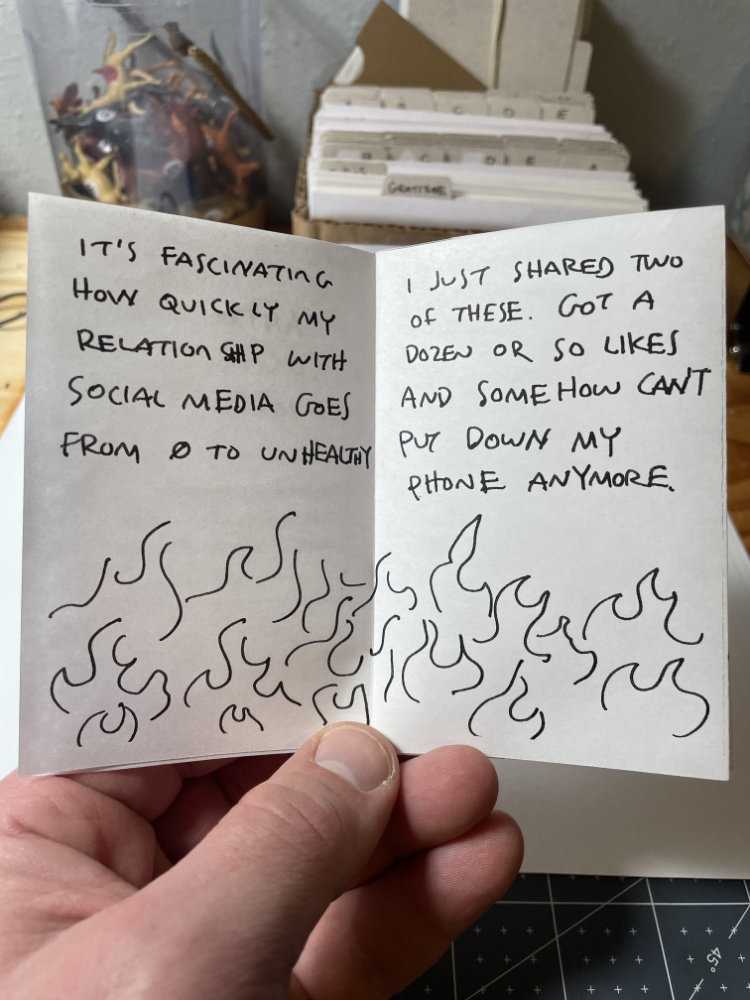 IT'S FASCINATING
HOW QUICKLY MY
RELATIONSHIP WITH
SOCIAL MEDIA GOES
FROM Ø TO UNHEALTHY
I JUST SHARED TWO
OF THESE. GOT A
DOZEN OR SO LIKES
AND SOMEHOW CAN'T
PUT DOWN MY
PHONE ANYMORE.
C D E
D E
GRATITUDE
45°